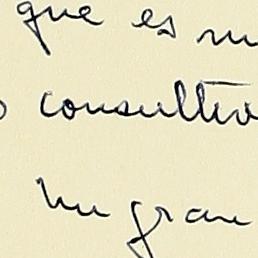 que es
consultiv
un gran